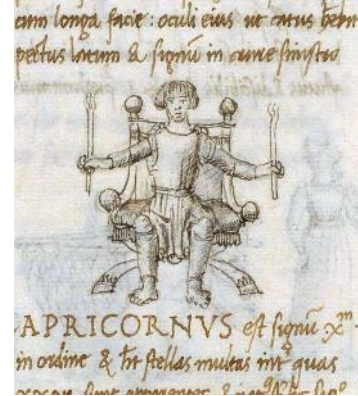 cum longa facie: oculi eius ut catus
pectus latum & signũ in crure sinistro
APRICORNVS est signũ xᵐ
in ordine & ht stellas multas int quas